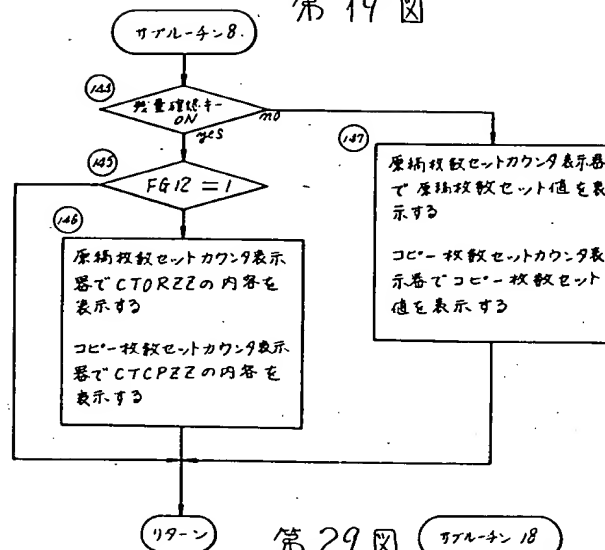 第19図
サブルーチン8.
144
残量確認キー
ON
no
yes
145
FG12=1
146
原稿枚数セットカウンタ表示
器でCTORZZの内容を
表示する
コピー枚数セットカウンタ表示
器でCTCPZZの内容を
表示する
147
原稿枚数セットカウンタ表示器
で原稿枚数セット値を表
示する
コピー枚数セットカウンタ表
示器でコピー枚数セット
値を表示する
リターン
第29図
サブルーチン18